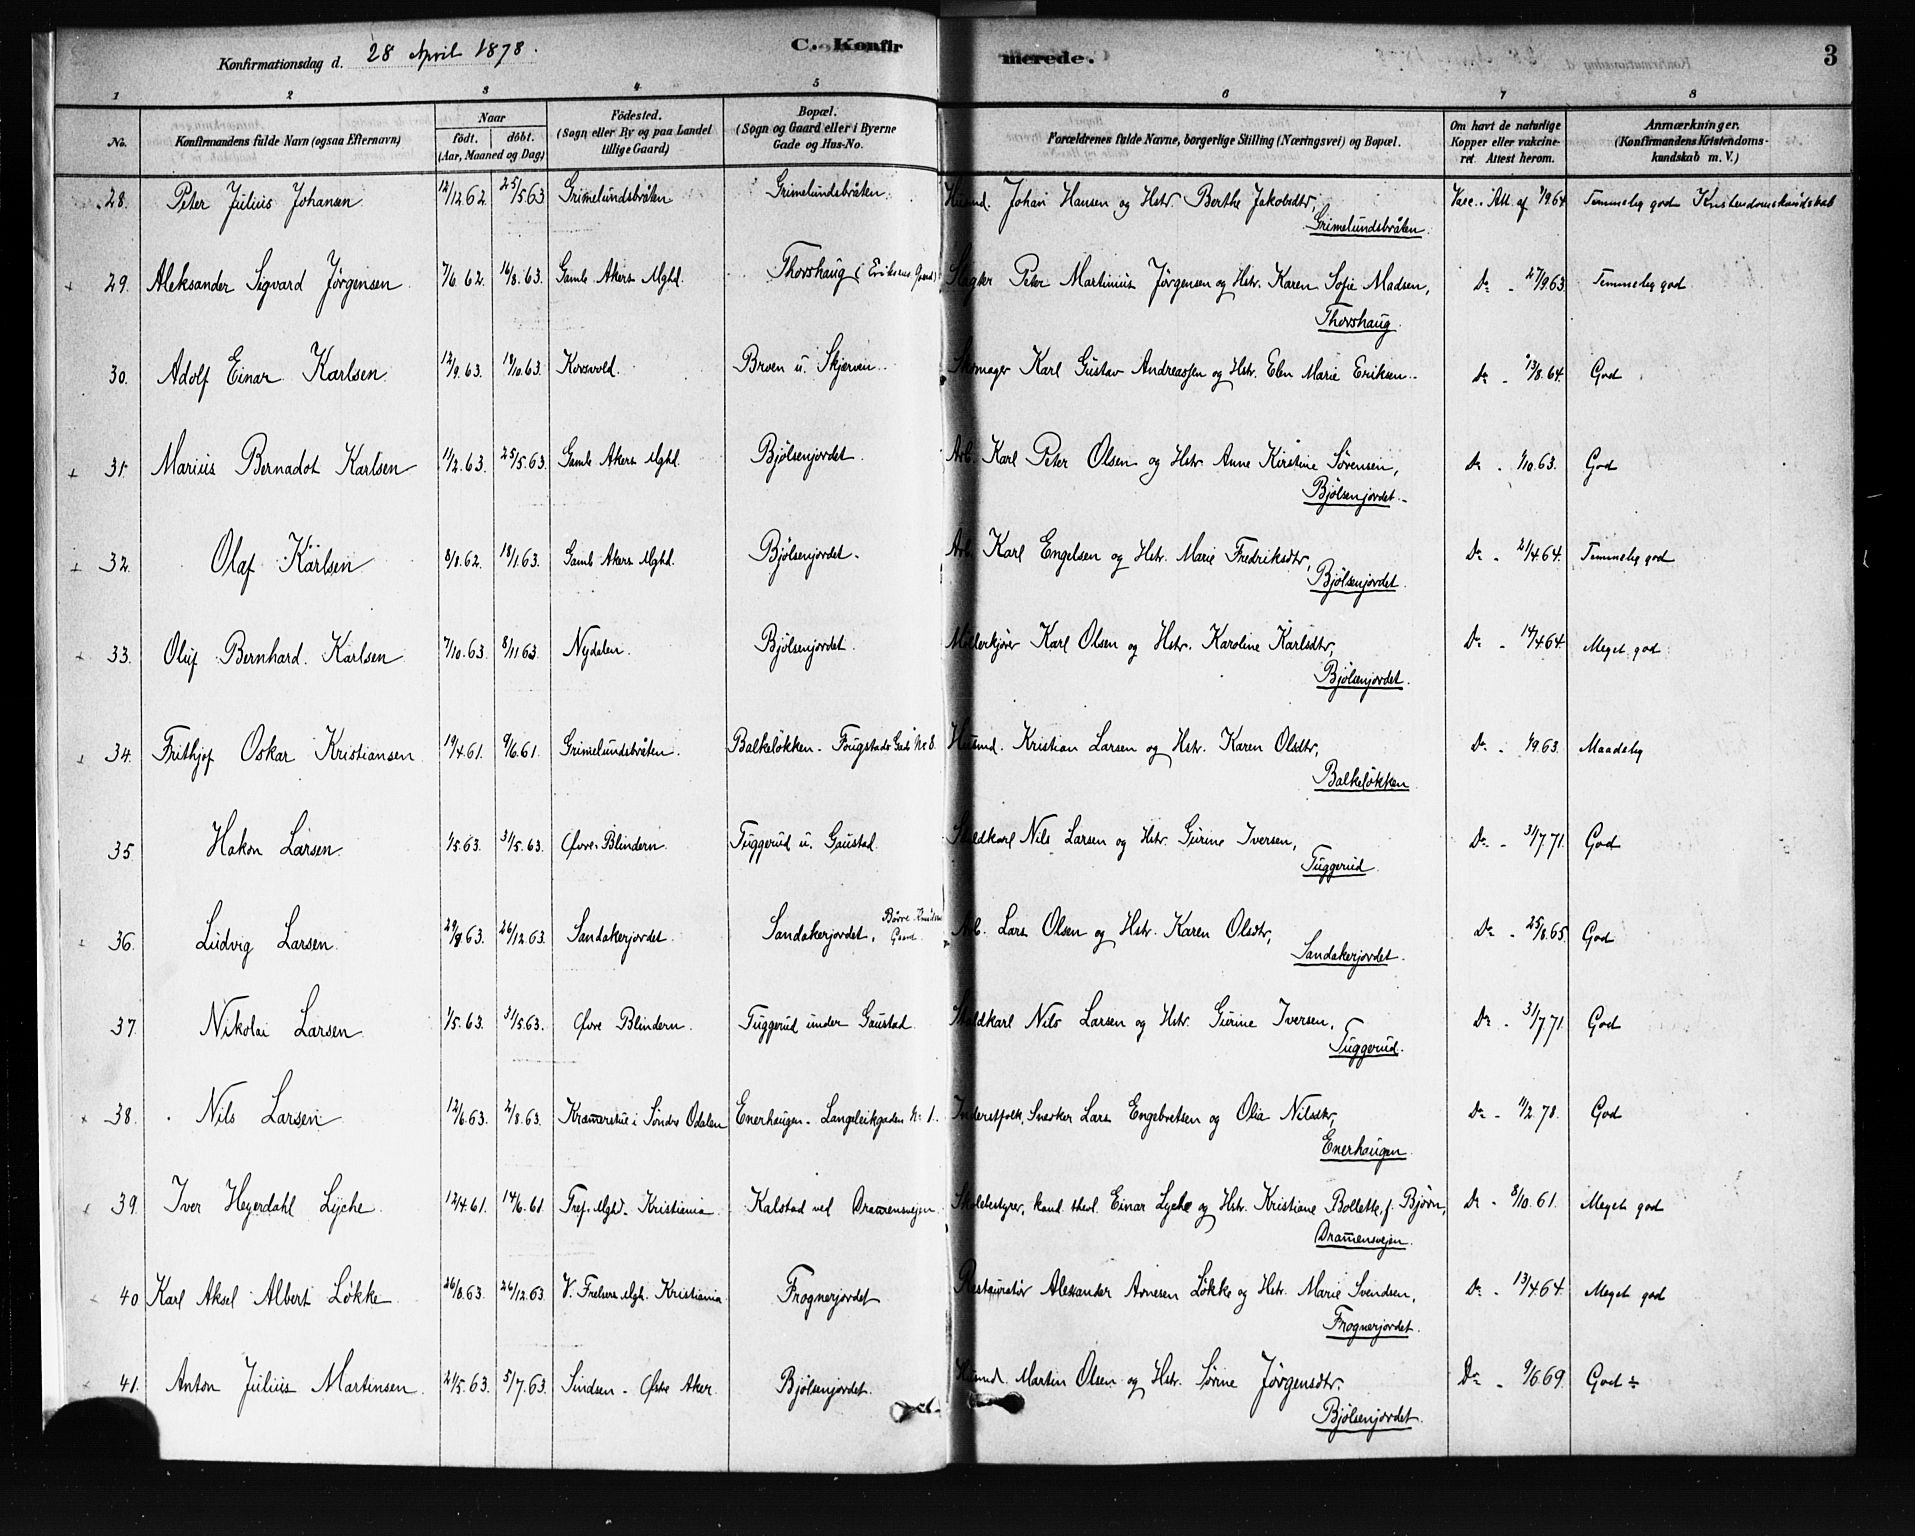 Konfirmationsdag d. 28 April 1878.
C. Konfirmerede.
3
1 2 3 4 5 6 7 8
No.
Konfirmandens fulde Navn (ogsaa Efternavn)
Naar
födt. döbt.
(Aar, Maaned og Dag)
Födested.
(Sogn eller By og paa Landet
tillige Gaard)
Bopæl.
(Sogn og Gaard eller i Byerne
Gade og Hus-No.
Forældrenes fulde Navne, borgerlige Stilling (Næringsvei) og Bopæl.
Om havt de naturlige
Kopper eller vakcine-
ret. Attest herom.
Anmærkninger.
(Konfirmandens Kristendoms-
kundskab m. V.)
28. Peter Julius Johansen 12/12.62. 25/5.63 Grimelundsbråten Grimelundsbråten. Husmd. Johan Hansen og Hstr. Berthe Jakobsdtr, Vacc. Att. af 1/9.64 Temmelig god Kristendomskundskab
Grimelundsbråten.
29. Aleksander Sigvard Jørgensen 7/6.62. 16/8.63. Gamle Akers Mghd. Thorshaug (Eriksens Gaard) Slagter Peter Martinius Jørgensen og Hstr. Karen Sofie Madsen, Do - 27/9.63 Temmelig god
Thorshaug
30. Adolf Einar Karlsen 12/9.63. 18/10.63. Korsvold. Broen u. Skjerven. Skomager Karl Gustav Andreassen og Hstr. Elen Marie Eriksen. Do - 13/8.64. God
31. Marius Bernadot Karlsen 11/2.63. 25/5.63. Gamle Akers Mghd. Bjölsenjordet. Arb. Karl Peter Olsen og Hstr. Anne Kirstine Sørensen, Do - 1/10.63. God
Bjölsenjordet.
32. Olaf Karlsen 8/8.62. 18/1.63. Gamle Akers Mghd. Bjölsenjordet. Arb. Karl Engelsen og Hstr. Marie Fredriksdtr, Do - 21/4.64. Temmelig god
Bjölsenjordet.
33. Oluf Bernhard Karlsen 7/10.63. 8/11.63. Nydalen. Bjölsenjordet. Möllerkjörer Karl Olsen og Hstr. Karoline Karlsdtr, Do - 14/4.64. Meget god
Bjölsenjordet.
34. Frithjof Oskar Kristiansen 19/4.61. 9/6.61. Grimelundsbråten. Balkeløkken. Fougstads Gade No 8. Husmd. Kristian Larsen og Hstr. Karen Olsdtr, Do - 1/9.63. Maadelig
Balkeløkken
35. Hakon Larsen 1/5.63. 31/5.63. Øvre Blindern. Tuggerud u. Gaustad. Staldkarl Nils Larsen og Hstr. Gurine Iversen, Do - 31/7.71. God
Tuggerud
36. Ludvig Larsen 29/8.63. 26/12.63. Sandakerjordet. Sandakerjordet, Börre Knudsens Gaard Arb. Lars Olsen og Hstr. Karen Olsdtr, Do - 25/8.65. God
Sandakerjordet.
37. Nikolai Larsen 1/5.63. 31/5.63. Øvre Blindern. Tuggerud under Gaustad. Staldkarl Nils Larsen og Hstr. Gurine Iversen, Do - 31/7.71. God
Tuggerud.
38. Nils Larsen 12/6.63. 2/8.63. Kramerstue i Søndre Odalen Enerhaugen. Langleikgaden No 1. Inderstfolk, Snedker Lars Engebretsen og Olia Nilsdtr, Do - 11/2.78. God
Enerhaugen.
39. Iver Heyerdahl Lyche 12/4.61. 14/6.61. Tref. Mghd. Kristiania Kalstad ved Dramensvejen Skolebestyrer, kand. theol. Einar Lyche og Hstr. Kristiane Bollette, f. Bjørn, Do - 8/10.61. Meget god
Dramensvejen.
40 Karl Aksel Albert Løkke 26/8.63. 26/12.63. V. Frelsers Mgh. Kristiania Frognerjordet Restauratør Alexander Arnesen Løkke og Hstr. Marie Svendsen, Do - 13/4.64. Meget god
Frognerjordet.
41. Anton Julius Martinsen 21/5.63. 5/7.63. Sindsen. Østre Aker. Bjölsenjordet. Husmd. Martin Olsen og Hstr. Sørine Jørgensdtr. Do - 9/6.69. God
Bjölsenjordet.